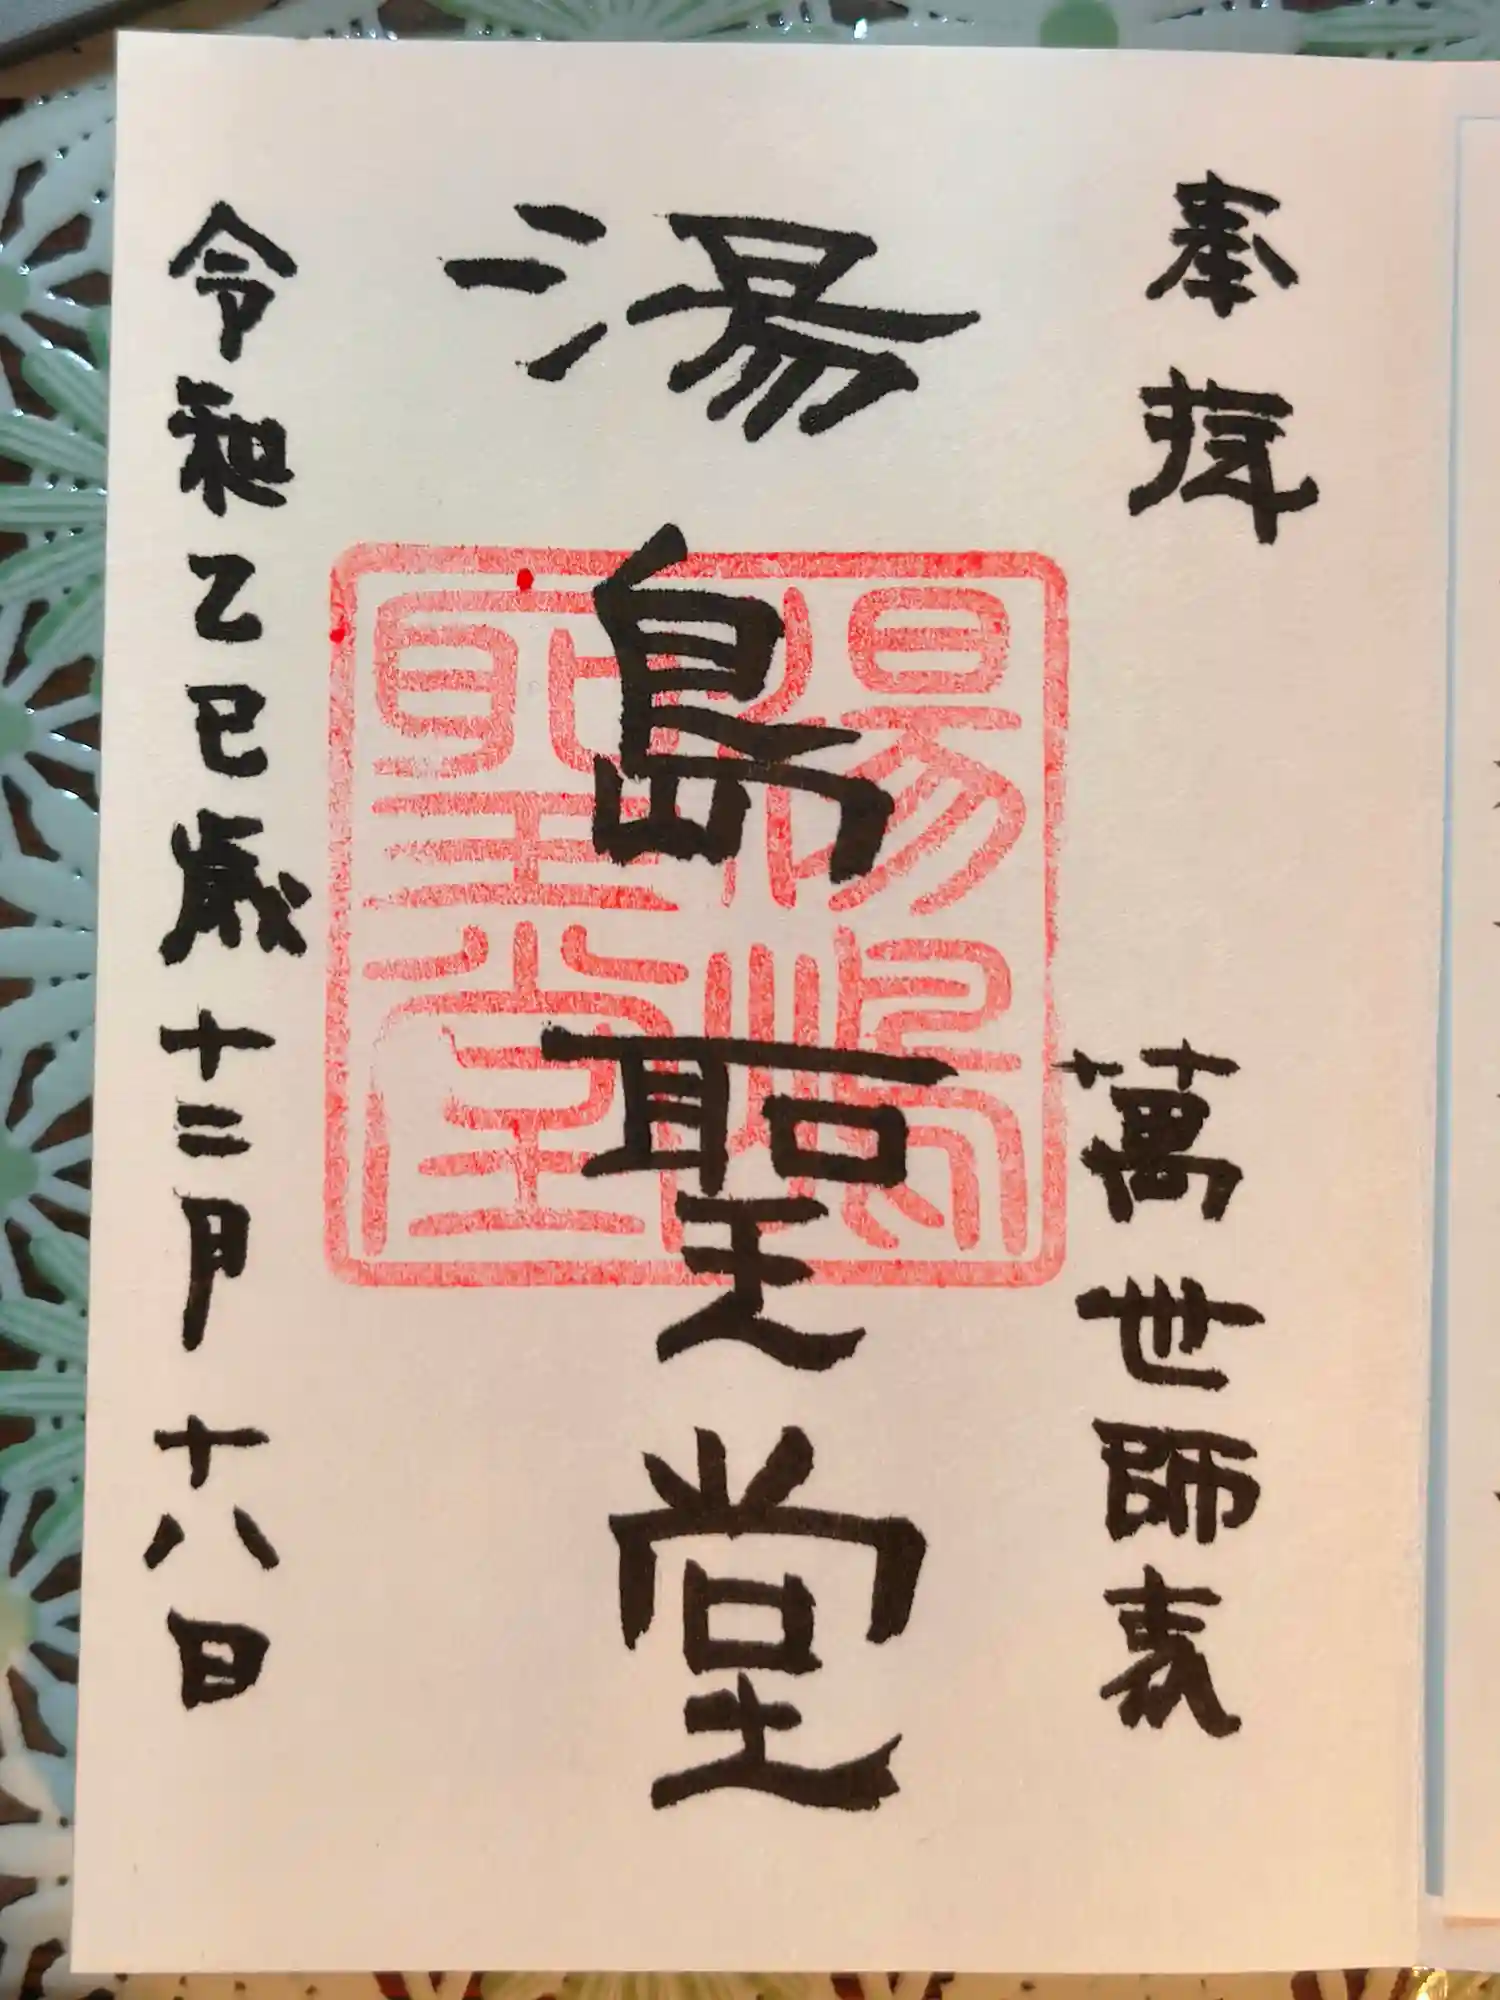 奉拝
萬世師表
湯島聖堂
湯島聖堂
令和乙巳歳十二月十八日